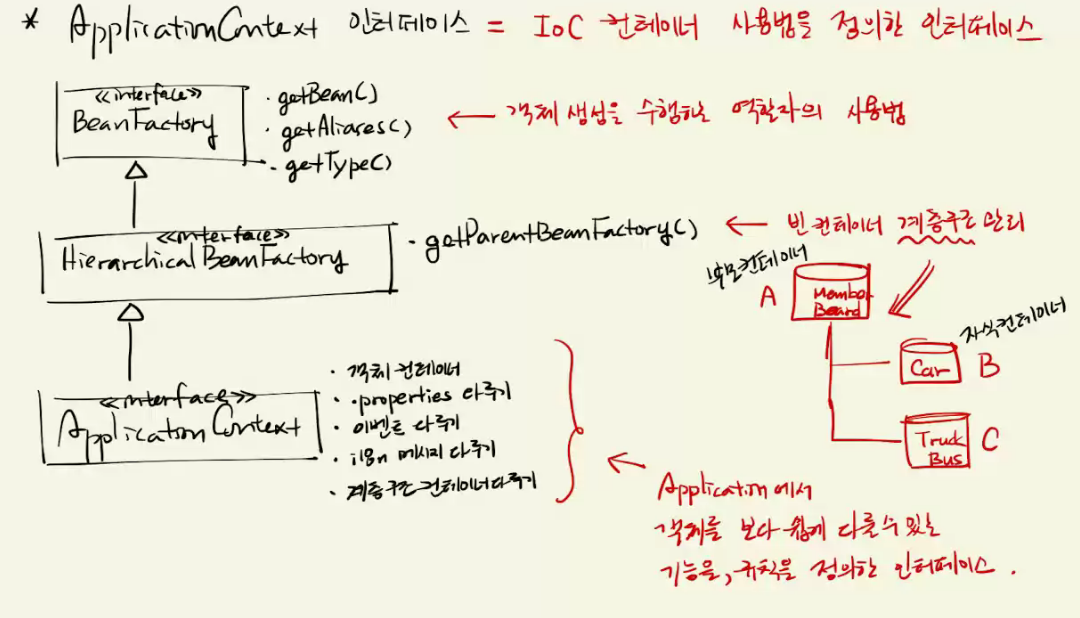 * ApplicationContext 인터페이스 = IoC 컨테이너 사용법을 정의한 인터페이스
<<interface>>
BeanFactory
· getBean()
· getAliases()
· getType()
← 객체 생성을 수행하는 역할자의 사용법
<<interface>>
HierarchicalBeanFactory
· getParentBeanFactory()
← 빈 컨테이너 계층구조 관리
부모컨테이너
A
Member
Board
자식컨테이너
Car
B
Truck
Bus
C
<<interface>>
ApplicationContext
· 객체 컨테이너
· .properties 다루기
· 이벤트 다루기
· i18n 메시지 다루기
· 계층구조 컨테이너 다루기
← Application에서
객체를 보다 쉽게 다룰 수 있는
기능을, 규칙을 정의한 인터페이스.